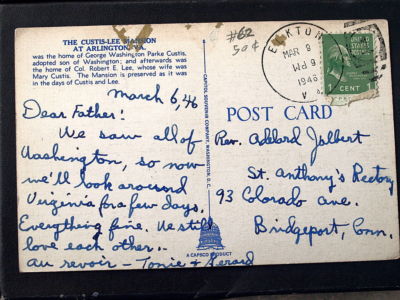 THE CUSTIS-LEE MANSION
AT ARLINGTON, VA.
was the home of George Washington Parke Custis,
adopted son of Washington; and afterwards was
the home of Col. Robert E. Lee, whose wife was
Mary Custis. The Mansion is preserved as it was
in the days of Custis and Lee.
March 6, 46
Dear Father!
We saw all of
Washington, so now
we'll look around
Virginia for a few days.
Everything fine. We still
love each other..
au revoir - Tonie & Gerard
CAPSCO SOUVENIR COMPANY, WASHINGTON, D.C.
A CAPSCO PRODUCT
#62
50¢
ELKTON
MAR 9
9
1946
V
UNITED
STATES
POSTAGE
1 CENT
POST CARD
Rev. Addard Jalbert
St. Anthony's Rectory
93 Colorado ave.
Bridgeport, Conn.